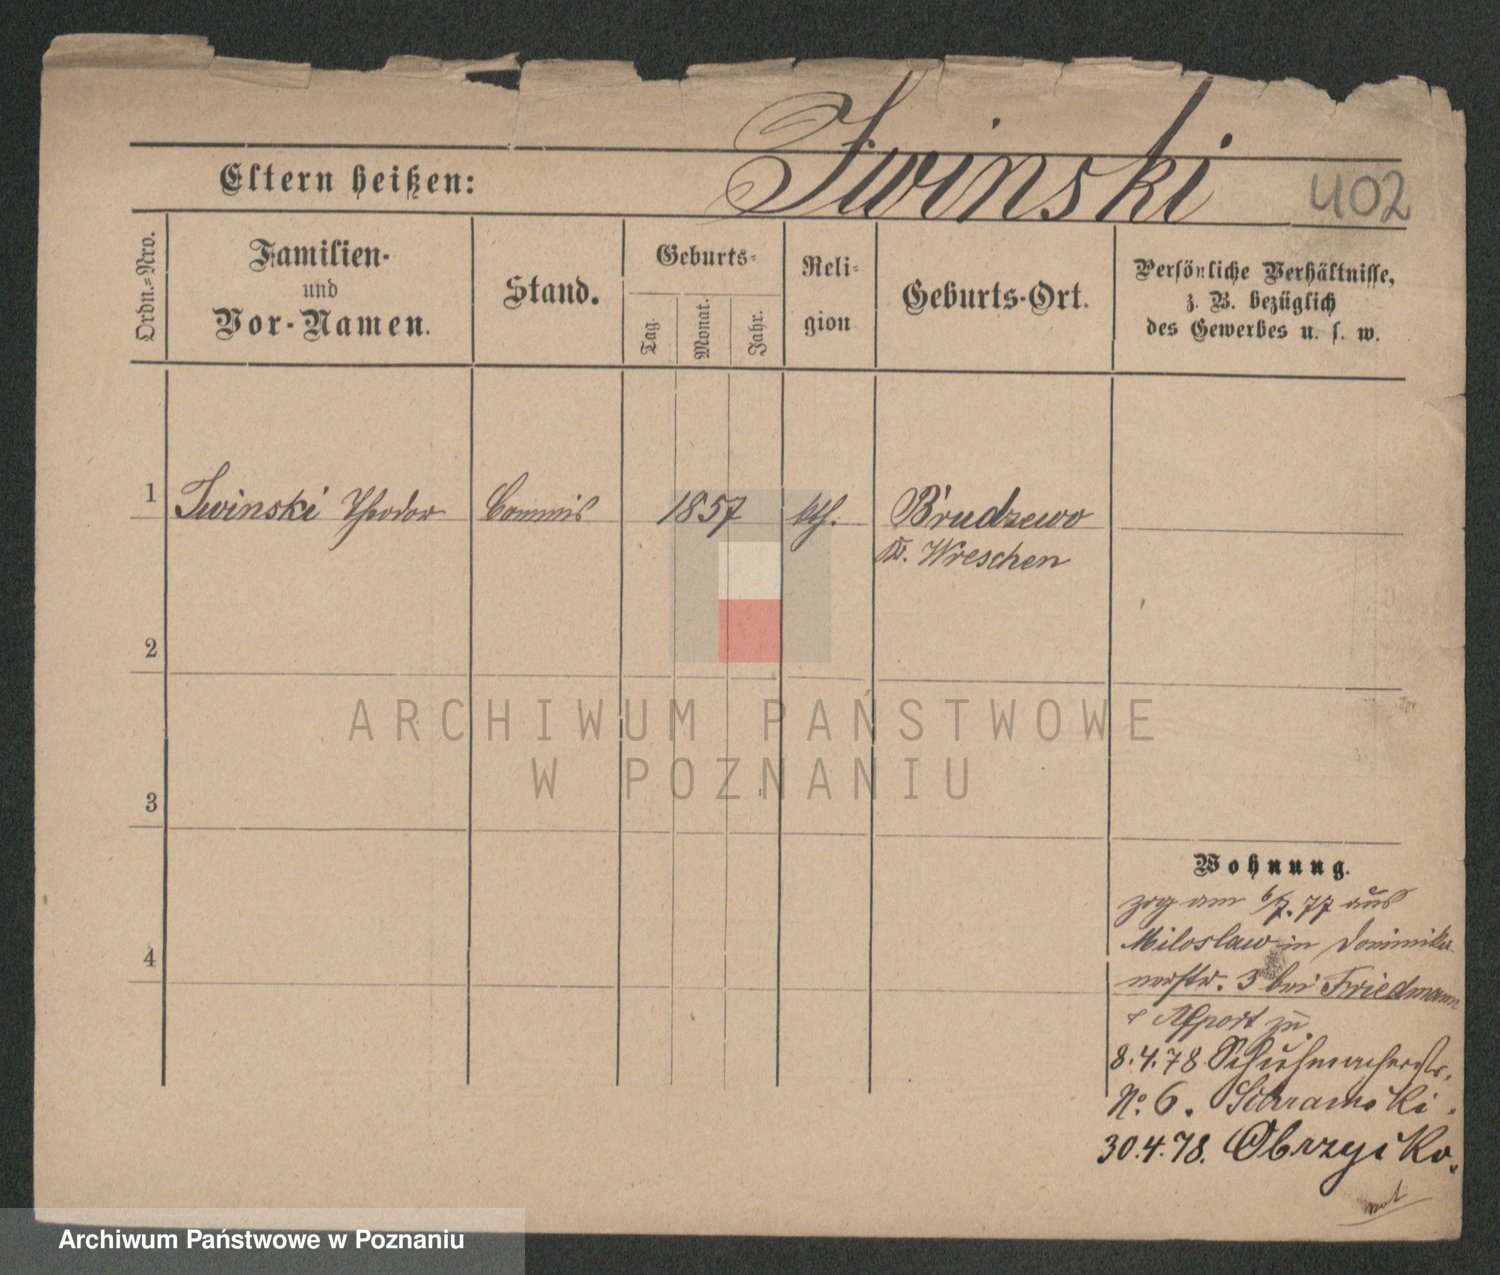 Iwinski
Eltern heißen:
402
Ordn.-Nro.
Familien-
und
Vor-Namen.
Stand.
Geburts-
Tag.
Monat.
Jahr.
Reli-
gion
Geburts-Ort.
Persönliche Verhältnisse,
z. B. bezüglich
des Gewerbes u. s. w.
1 Iwinski Theodor Commis 1857 kth. Brudzewo
Kr. Wreschen
2
ARCHIWUM PAŃSTWOWE
W POZNANIU
3
Wohnung.
zog am 6/7. 77 aus
Miloslaw in Dominika-
4
nerstr. 3 bei Friedmann
zu
8.4.78 Schuhmacherstr.
No. 6.
30.4.78. Obrzycko.
Archiwum Państwowe w Poznaniu